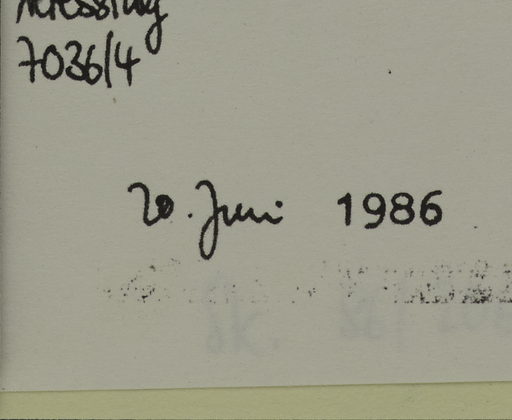 7036/4
20. Juni 1986